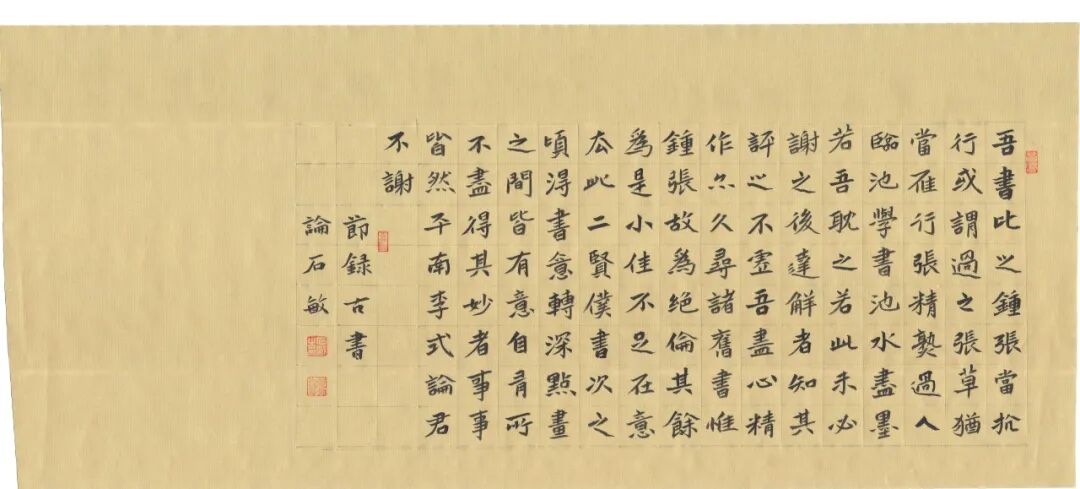 吾書比之鍾張當抗
行或謂過之張草猶
當雁行張精熟過人
臨池學書池水盡墨
若吾耽之若此未必
謝之後達解者知其
評之不虛吾盡心精
作亦久尋諸舊書惟
鍾張故為絕倫其餘
為是小佳不足在意
去此二賢僕書次之
頃得書意轉深點畫
之間皆有意自有所
不盡得其妙者事事
皆然平南李式論君
不謝
節錄古書
論石敏